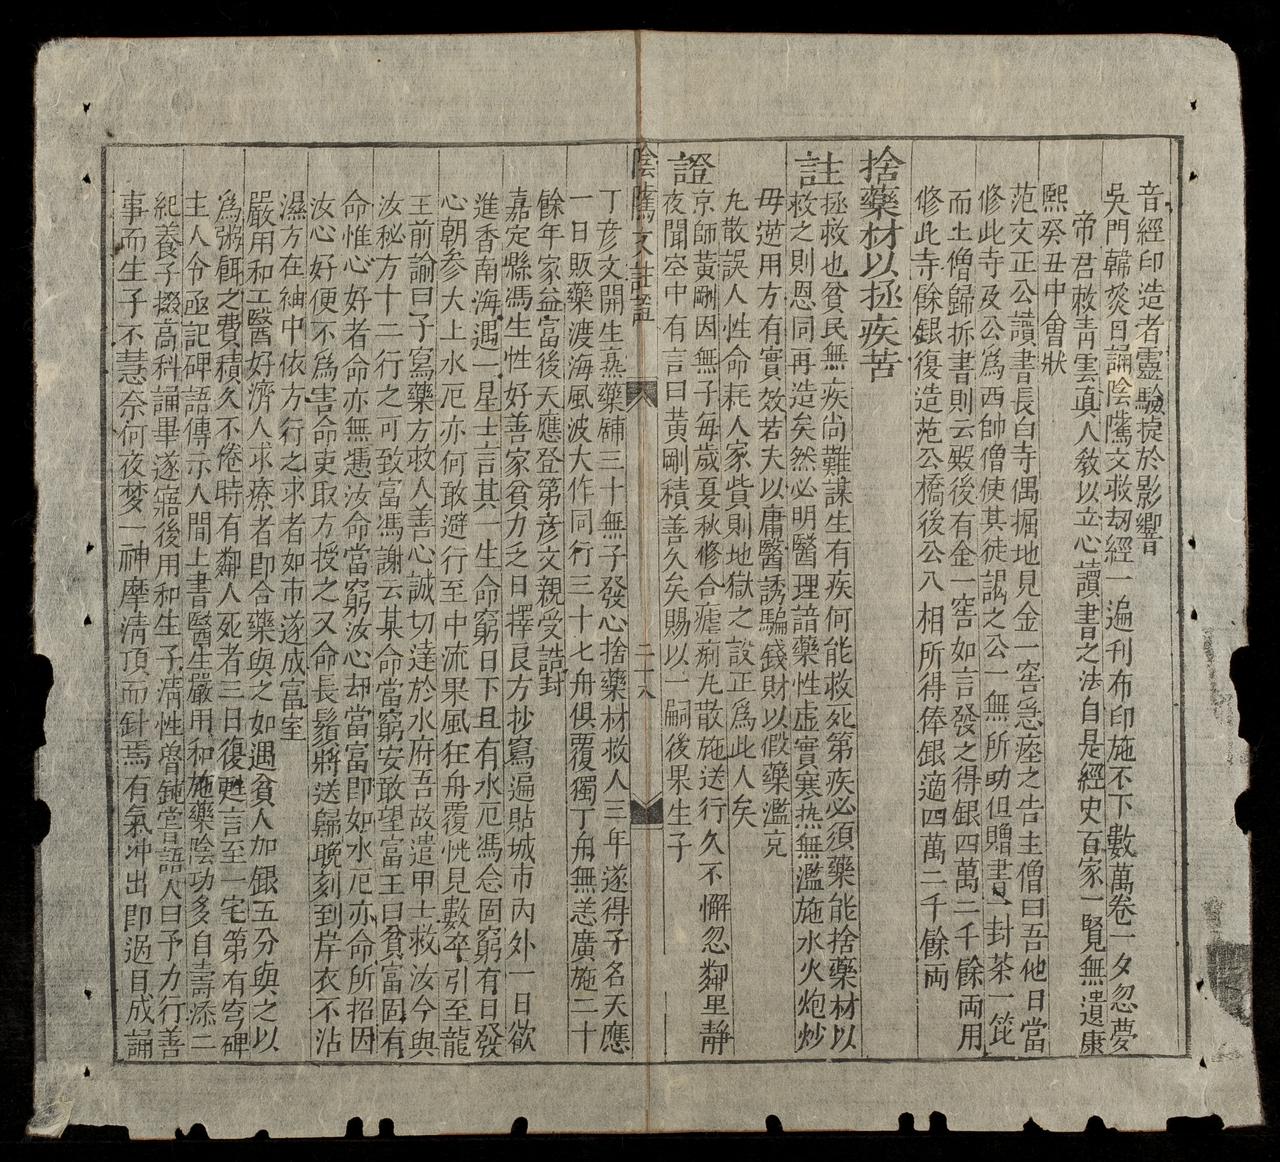 音經印造者靈驗捷於影響
吳門韓菼日誦陰騭文救刼經一遍刊布印施不下數萬卷一夕忽夢
帝君敕青雲眞人教以立心讀書之法自是經史百家一覽無遺康
熙癸丑中會狀
范文正公讀書長白寺偶掘地見金一窖急瘞之告主僧曰吾他日當
修此寺及公爲西帥僧使其徒謁之公一無所助但贈書一封茶一篦
而土僧歸拆書則云殿後有金一窖如言發之得銀四萬二千餘両用
修此寺餘銀復造范公橋後公入相所得俸銀適四萬二千餘両
捨藥材以拯疾苦
註
拯救也貧民無疾尚難謀生有疾何能救死第疾必須藥能捨藥材以
救之則恩同再造矣然必明醫理諳藥性虛實寒热無濫施水火炮炒
毋逆用方有實效若夫以庸醫誘騙錢財以假藥濫克
九散誤人性命耗人家貲則地獄之設正爲此人矣
證
京師黃剛因無子每歲夏秋修合瘧痢九散施送行久不懈忽鄰里靜
夜聞空中有言曰黃剛積善久矣賜以一嗣後果生子
陰騭文註證 二十八
丁彥文開生熟藥鋪三十無子發心捨藥材救人三年遂得子名天應
一日販藥渡海風波大作同行三十七舟俱覆獨丁舟無恙廣施二十
餘年家益富後天應登第彥文親受誥封
嘉定縣馮生性好善家貧力乏日擇良方抄寫遍貼城市內外一日欲
進香南海遇一星士言其一生命窮日下且有水厄馮念固窮有日發
心朝參大上水厄亦何敢避行至中流果風狂舟覆恍見數卒引至龍
王前諭曰子寫藥方救人善心誠切達於水府吾故遣甲士救汝今與
汝秘方十二行之可致富馮謝云某命當窮安敢望富王曰貧富固有
命惟心好者命亦無憑汝命當窮汝心却當富即如水厄亦命所招因
汝心好便不爲害命吏取方授之又命長鬚將送歸晚刻到岸衣不沾
濕方在紬中依方行之求者如市遂成富室
嚴用和工醫好濟人求療者即合藥與之如遇貧人加銀五分與之以
爲粥餌之費積久不倦時有鄰人死者三日復甦言至一宅第有穹碑
主人令亟記碑語傳示人間上書醫生嚴用和施藥陰功多自壽添二
紀養子掇高科誦畢遂寤後用和生子凊性魯鈍嘗語人曰予力行善
事而生子不慧奈何夜梦一神摩凊頂而針焉有氣冲出即過目成誦